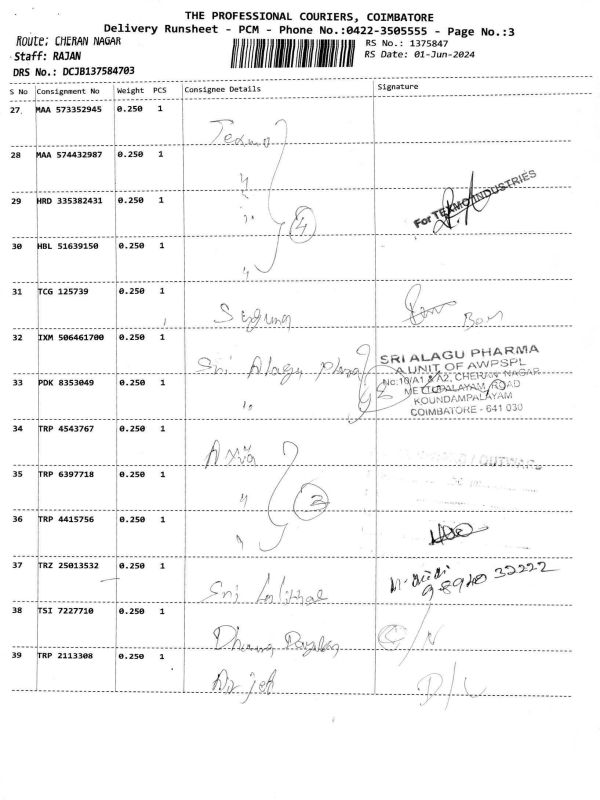 THE PROFESSIONAL COURIERS, COIMBATORE
Delivery Runsheet - PCM - Phone No.:0422-3505555 - Page No.:3
Route: CHERAN NAGAR
RS No.: 1375847
Staff: RAJAN
RS Date: 01-Jun-2024
DRS No.: DCJB137584703
S No Consignment No Weight PCS Consignee Details Signature
27. MAA 573352945 0.250 1 Texmo
28 MAA 574432987 0.250 1 "
29 HRD 335382431 0.250 1 " 4 For TEXMO INDUSTRIES
30 HBL 51639150 0.250 1 "
31 TCG 125739 0.250 1
32 IXM 506461700 0.250 1 Sri Alagu
SRI ALAGU PHARMA
A UNIT OF AWPSPL
No:10/A1 & A2, CHERAN NAGAR
METTUPALAYAM ROAD
KOUNDAMPALAYAM
COIMBATORE - 641 030
33 PDK 8353049 0.250 1 "
34 TRP 4543767 0.250 1
35 TRP 6397718 0.250 1 "
36 TRP 4415756 0.250 1 "
37 TRZ 25013532 0.250 1 Sri
98940 32222
38 TSI 7227710 0.250 1 C/N
39 TRP 2113308 0.250 1 D/L